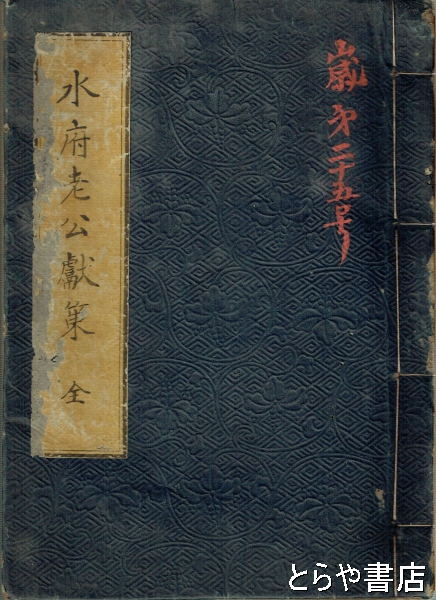 嵐㐧二十五号
水府老公獻策 全
とらや書店